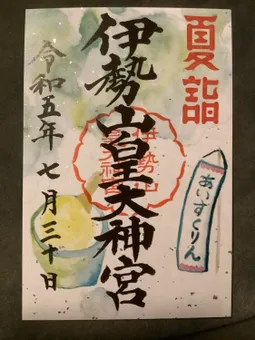 夏詣
伊勢山皇大神宮
伊勢山皇大神宮
令和五年 七月三十日
あいすくりん